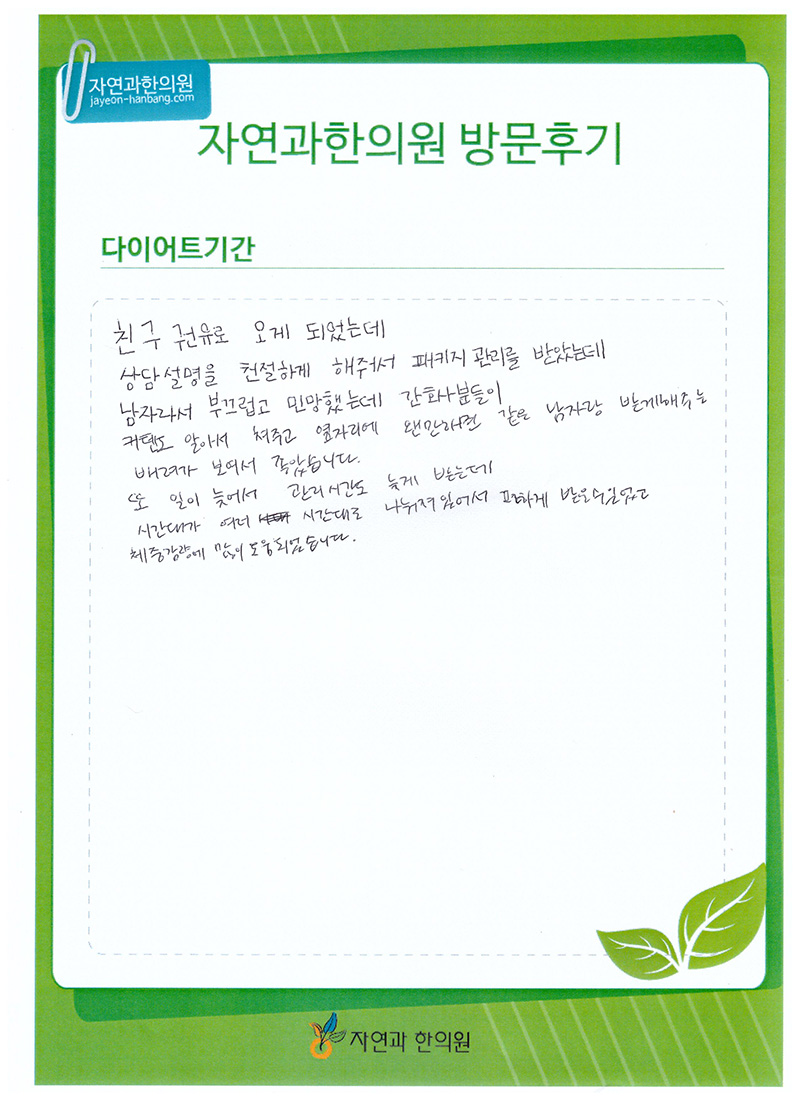 자연과한의원
jayeon-hanbang.com
자연과한의원 방문후기
다이어트기간
친구 권유로 오게 되었는데
상담설명을 친절하게 해주셔서 패키지관리를 받았는데
남자라서 부끄럽고 민망했는데 간호사분들이
커텐도 알아서 쳐주고 옆자리에 왠만하면 같은 남자랑 받게해주는
배려가 보여서 좋았습니다.
또 일이 늦어서 관리시간도 늦게 받는데
시간대가 여러 시간대로 나눠져있어서 편하게 받을수있었고
체중감량에 많이 도움되었습니다.
자연과 한의원